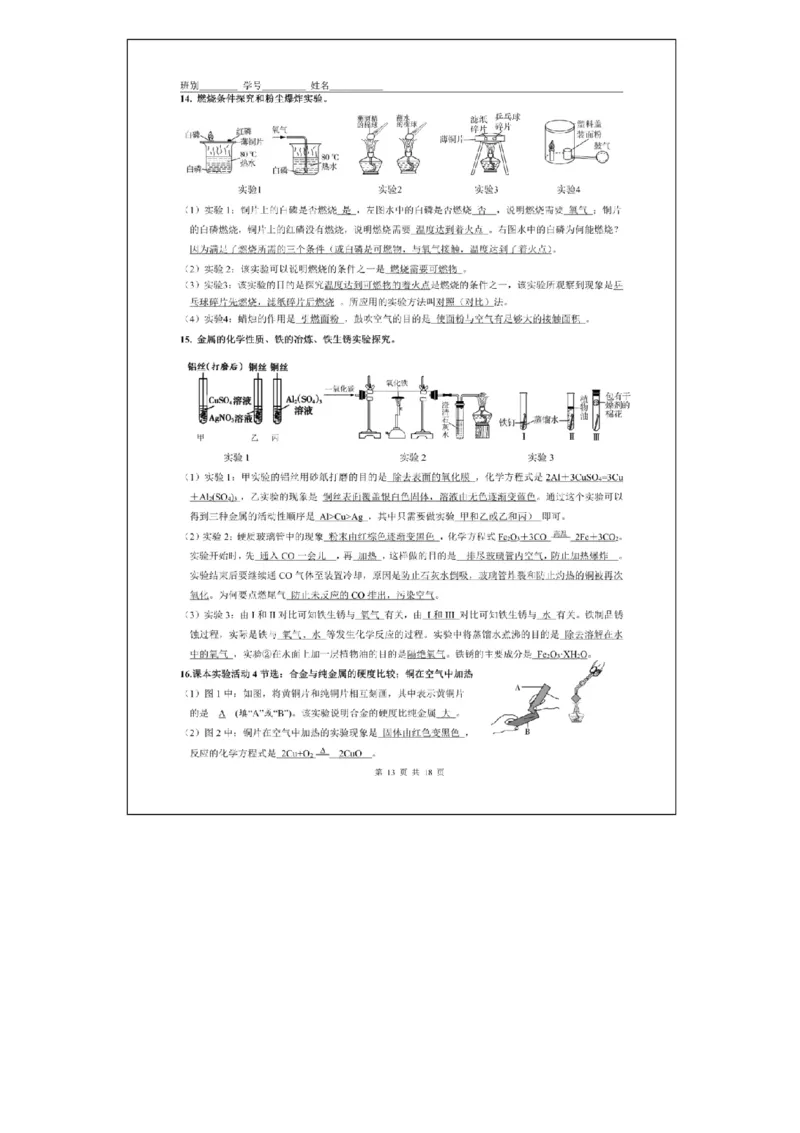 班别________ 学号_________ 姓名___________
14. 燃烧条件探究和粉尘爆炸实验。
白磷 红磷 薄铜片 80 ℃ 热水 白磷
氧气 80 ℃ 热水 白磷
蘸酒精的棉球 蘸水的棉球
滤纸碎片 乒乓球碎片 薄铜片
塑料盖 装面粉 鼓气
实验1 实验2 实验3 实验4
(1)实验 1:铜片上的白磷是否燃烧 是 ,左图水中的白磷是否燃烧 否 ,说明燃烧需要 氧气 ;铜片
的白磷燃烧,铜片上的红磷没有燃烧,说明燃烧需要 温度达到着火点 。右图水中的白磷为何能燃烧?
因为满足了燃烧所需的三个条件(或白磷是可燃物,与氧气接触,温度达到了着火点)。
(2)实验 2:该实验可以说明燃烧的条件之一是 燃烧需要可燃物 。
(3)实验3:该实验的目的是探究温度达到可燃物的着火点是燃烧的条件之一,该实验所观察到现象是乒
乓球碎片先燃烧,滤纸碎片后燃烧 。所应用的实验方法叫对照(对比)法。
(4)实验4:蜡烛的作用是 引燃面粉 ,鼓吹空气的目的是 使面粉与空气有足够大的接触面积 。
15. 金属的化学性质、铁的冶炼、铁生锈实验探究。
铝丝(打磨后) 铜丝 铜丝
CuSO₄溶液 AgNO₃溶液 Al₂(SO₄)₃溶液
甲 乙 丙
一氧化碳 氧化铁 澄清石灰水
铁钉 蒸馏水 植物油 包有干燥剂的棉花
I II III
实验 1 实验 2 实验 3
(1)实验 1:甲实验的铝丝用砂纸打磨的目的是 除去表面的氧化膜 ,化学方程式是 2Al+3CuSO₄=3Cu
+Al₂(SO₄)₃ ,乙实验的现象是 铜丝表面覆盖银白色固体,溶液由无色逐渐变蓝色。通过这个实验可以
得到三种金属的活动性顺序是 Al>Cu>Ag ,其中只需要做实验 甲和乙或乙和丙) 即可。
(2)实验 2:硬质玻璃管中的现象 粉末由红棕色逐渐变黑色 ,化学方程式 Fe₂O₃+3CO 高温 2Fe+3CO₂。
实验开始时,先 通入 CO 一会儿 ,再 加热 ,这样做的目的是 排尽玻璃管内空气,防止加热爆炸 。
实验结束后要继续通 CO 气体至装置冷却,原因是防止石灰水倒吸,玻璃管炸裂和防止灼热的铜被再次
氧化。为何要点燃尾气 防止未反应的 CO 排出,污染空气。
(3)实验 3:由 I 和 II 对比可知铁生锈与 氧气 有关,由 I 和 III 对比可知铁生锈与 水 有关。铁制品锈
蚀过程,实际是铁与 氧气、水 等发生化学反应的过程。实验中将蒸馏水煮沸的目的是 除去溶解在水
中的氧气 ,实验②在水面上加一层植物油的目的是隔绝氧气。铁锈的主要成分是 Fe₂O₃·XH₂O。
16.课本实验活动 4 节选:合金与纯金属的硬度比较;铜在空气中加热
(1)图 1 中:如图,将黄铜片和纯铜片相互刻画,其中表示黄铜片
的是 A (填“A”或“B”)。该实验说明合金的硬度比纯金属 大 。
A
B
(2)图 2 中:铜片在空气中加热的实验现象是 固体由红色变黑色 ,
反应的化学方程式是 2Cu+O₂ △ 2CuO 。
第 13 页 共 18 页